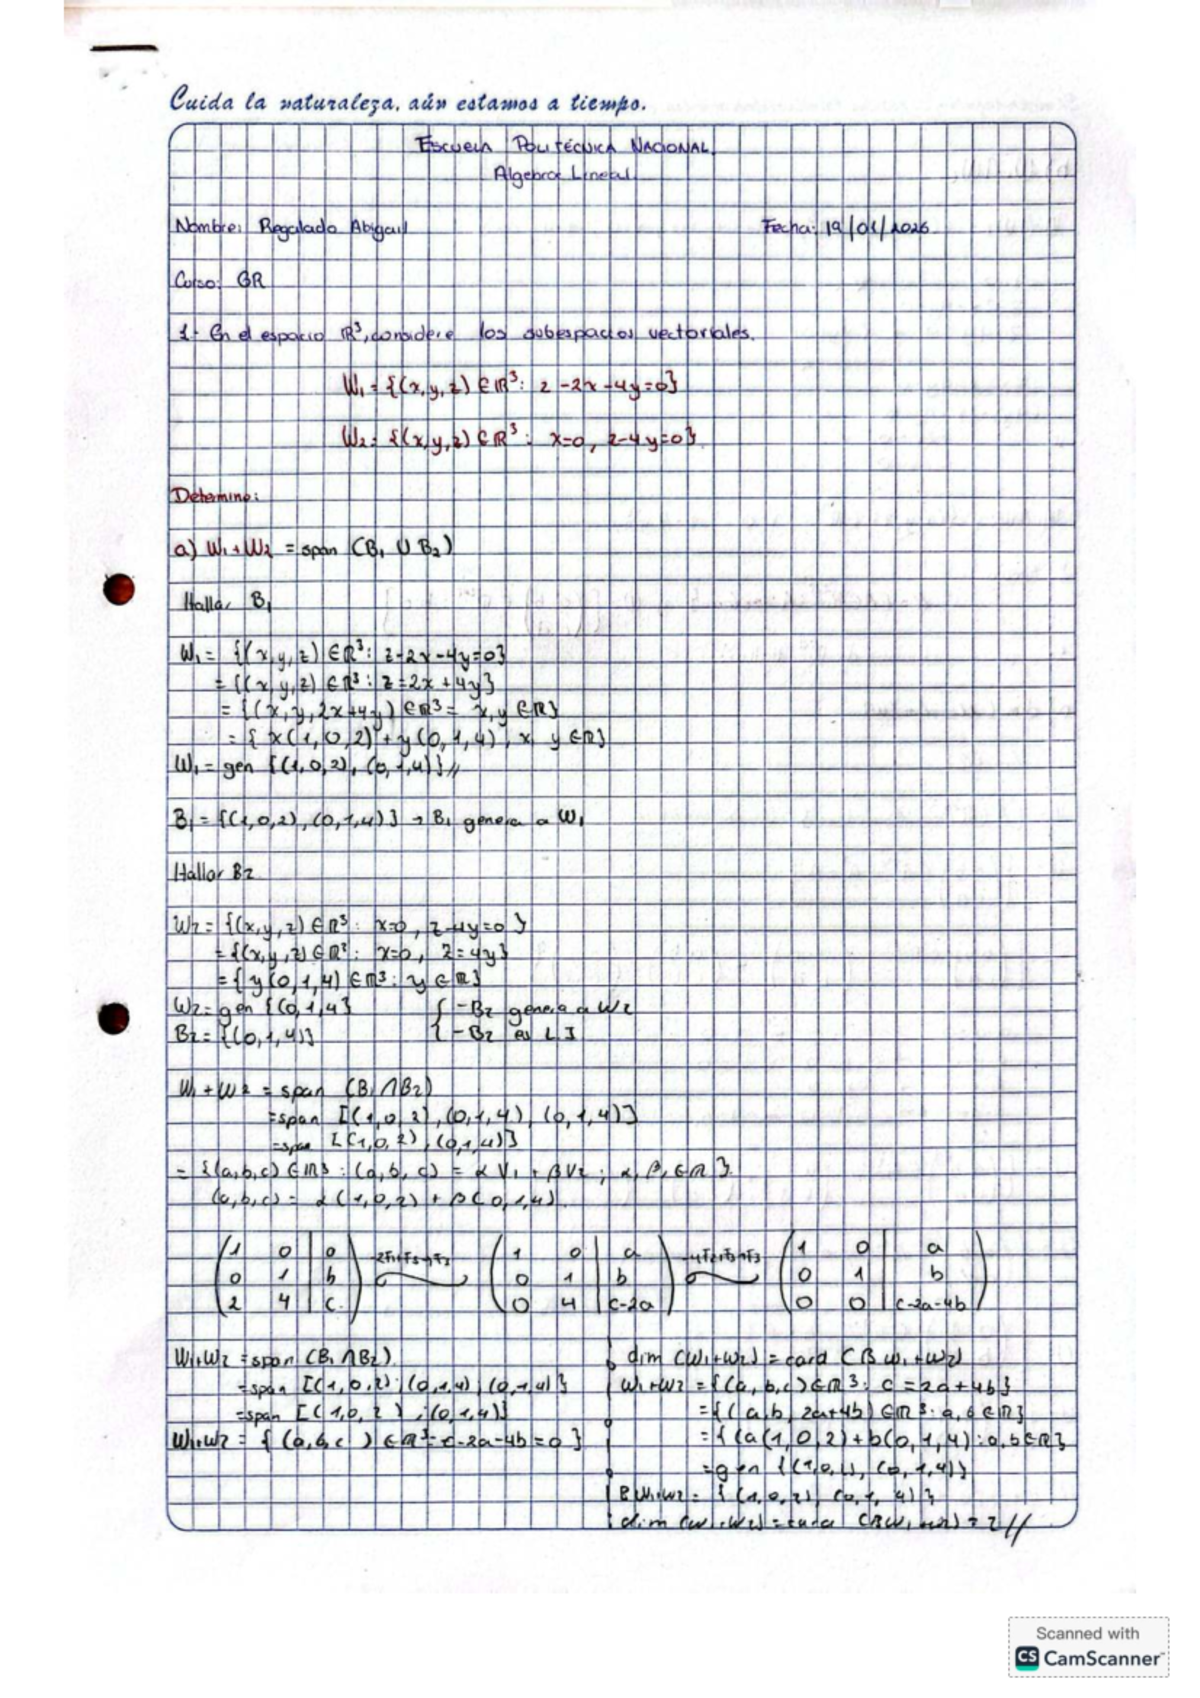 Cuida la naturaleza, aún estamos a tiempo.
ESCUELA POLITÉCNICA NACIONAL.
Algebra Lineal.
Nombre: Regalado Abigail Fecha: 19/01/2026
Curso: GR
1- En el espacio ℝ³, considere los subespacios vectoriales.
W₁ = {(x,y,z) ∈ ℝ³: z - 2x - 4y = 0}
W₂ = {(x,y,z) ∈ ℝ³: x=0, z-4y=0}
Determine:
a) W₁+W₂ = span (B₁ ∪ B₂)
Hallar B₁
W₁ = {(x,y,z) ∈ ℝ³: z-2x-4y=0}
= {(x,y,z) ∈ ℝ³: z=2x+4y}
= {(x,y,2x+4y) ∈ ℝ³ = x,y ∈ ℝ}
= { x(1,0,2) + y(0,1,4), x, y ∈ ℝ}
W₁ = gen {(1,0,2), (0,1,4)}//
B₁ = {(1,0,2), (0,1,4)} → B₁ genera a W₁
Hallar B₂
W₂ = {(x,y,z) ∈ ℝ³: x=0, z-4y=0}
= {(x,y,z) ∈ ℝ³: x=0, z=4y}
= { y(0,1,4) ∈ ℝ³: y ∈ ℝ}
W₂ = gen {(0,1,4} { - B₂ genera a W₂
B₂ = {(0,1,4)} { - B₂ es L.I
W₁+W₂ = span (B₁ ∩ B₂)
= span [(1,0,2), (0,1,4), (0,1,4)}
= span [(1,0,2), (0,1,4)}
= {(a,b,c) ∈ ℝ³: (a,b,c) = α V₁ + β V₂; α, β, ∈ ℝ}
(a,b,c) = α(1,0,2) + β(0,1,4)
( 1 0 | a ) -2F₁+F₃→F₃ ( 1 0 | a ) -4F₂+F₃→F₃ ( 1 0 | a )
( 0 1 | b ) ( 0 1 | b ) ( 0 1 | b )
( 2 4 | c ) ( 0 4 | c-2a ) ( 0 0 | c-2a-4b )
W₁+W₂ = span (B₁ ∩ B₂)
= span [(1,0,2); (0,1,4); (0,1,4)}
= span [(1,0,2); (0,1,4)}
W₁+W₂ = { (a,b,c) ∈ ℝ³ = c-2a-4b=0 }
dim (W₁+W₂) = card (B W₁+W₂)
W₁+W₂ = {(a,b,c) ∈ ℝ³: c=2a+4b}
= {(a,b, 2a+4b) ∈ ℝ³: a,b ∈ ℝ}
= {(a(1,0,2) + b(0,1,4): a,b ∈ ℝ}
= gen {(1,0,2), (0,1,4)}
B W₁+W₂ = {(1,0,2), (0,1,4)}
dim (W₁+W₂) = card (B W₁+W₂) = 2//
Scanned with
CS CamScanner